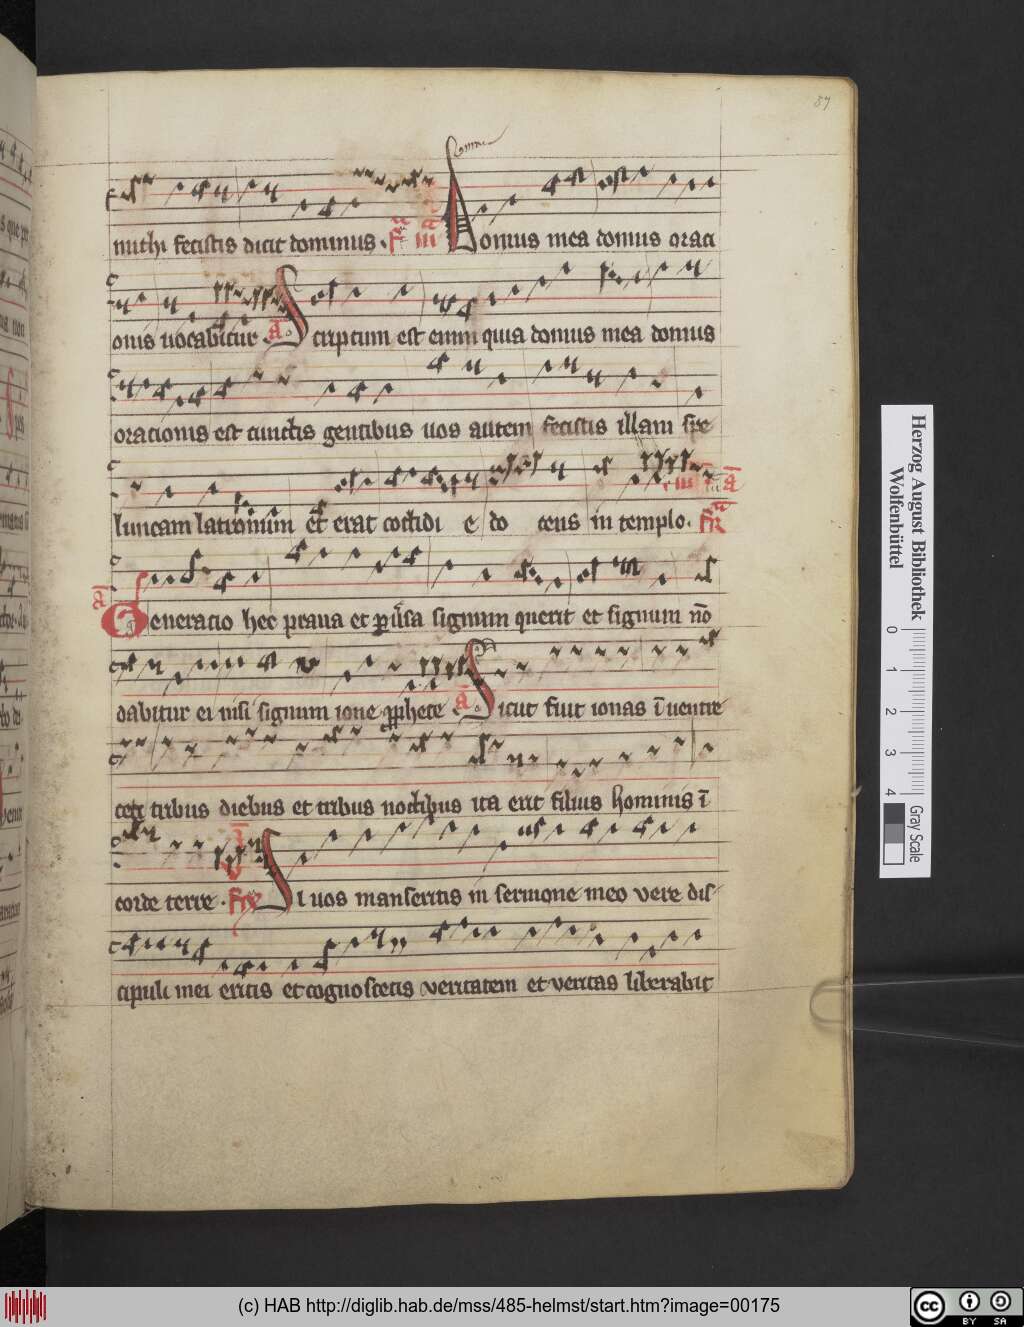 87
michi fecistis dicit dominus. fr iii Domus mea domus oraci
onis uocabitur a Scriptum est enim quia domus mea domus
oracionis est cunctis gentibus uos autem fecistis illam spe
luncam latronum et erat cottidi e do cens in templo. fr a
a Generacio hec praua et puersa signum querit et signum nō
dabitur ei nisi signum ione pphete a Sicut fuit ionas ī uentre
ceti tribus diebus et tribus noctibus ita erit filius hominis ī
corde terre. Si uos manseritis in sermone meo vere dis
cipuli mei eritis et cognoscetis veritatem et veritas liberabit
Herzog August Bibliothek
Wolfenbüttel
0 1 2 3 4
Gray Scale
(c) HAB http://diglib.hab.de/mss/485-helmst/start.htm?image=00175
cc BY SA